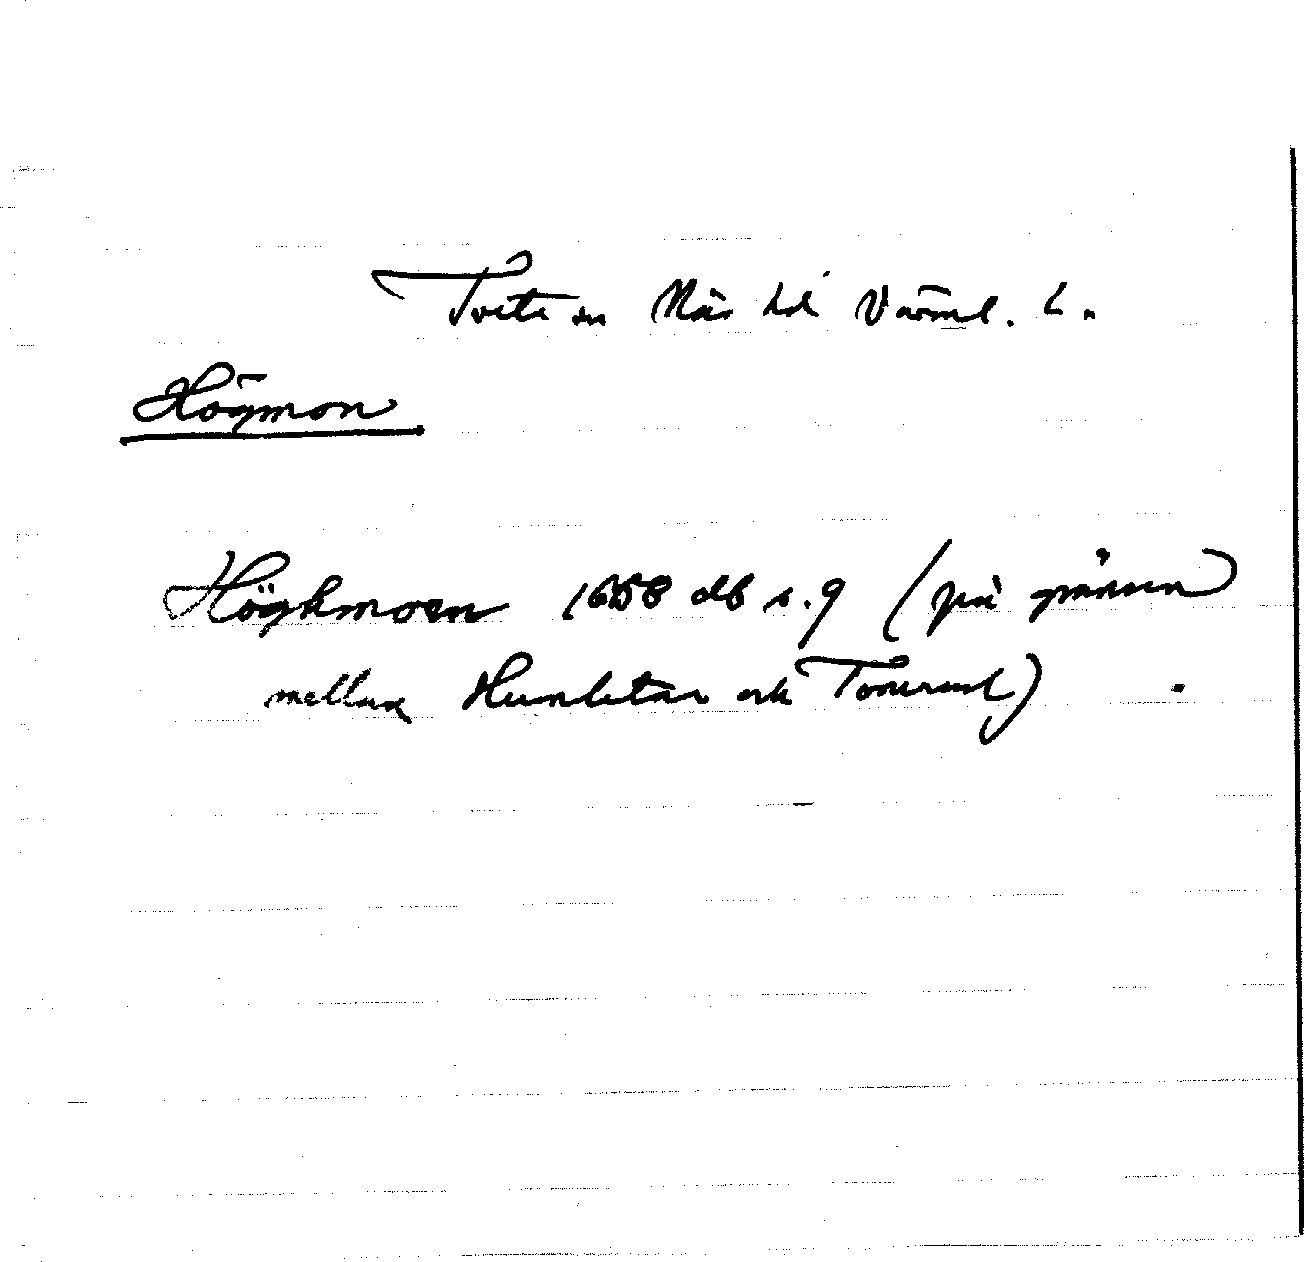 Tveta sn Näs hd Värml. l.
Högmon
Högkmoen 1658 db s. 9 (på gränsen
mellan Humletar och Tomerud)